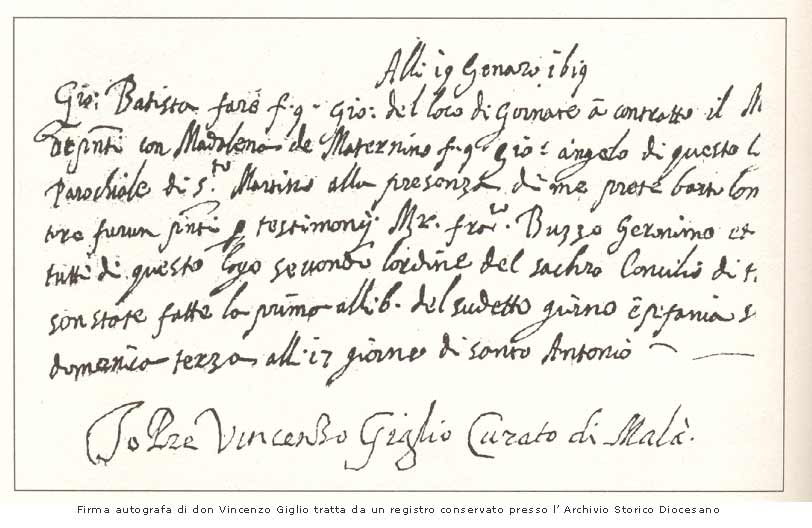 Alli 19 Genaro 1619
Gio: Batista farè f. q. Gio: del loco di Gornate à contratto il M
con Madalena de Maternino f. q. Gio: angelo di questo l
Parochiale di S.to Martino alla presenza di me prete bartolom
furun testimonij Mr. fra.co Buzzo Geronimo et
tutti di questo logo secondo lordine del sachro Concilio di t.
son state fatte la prima alli 6. del sudetto giorno Epifania s
domenica terza alli 17 giorno di santo Antonio
Io Pre Vincenzo Giglio Curato di Malà.
Firma autografa di don Vincenzo Giglio tratta da un registro conservato presso l' Archivio Storico Diocesano